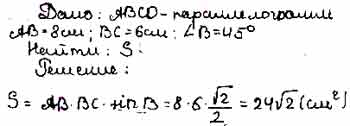 Дано: ABCD - параллелограмм
AB = 8 см; BC = 6 см; ∠B = 45°
Найти: S.
Решение:
S = AB · BC · sin B = 8 · 6 · √2/2 = 24√2 (см²)